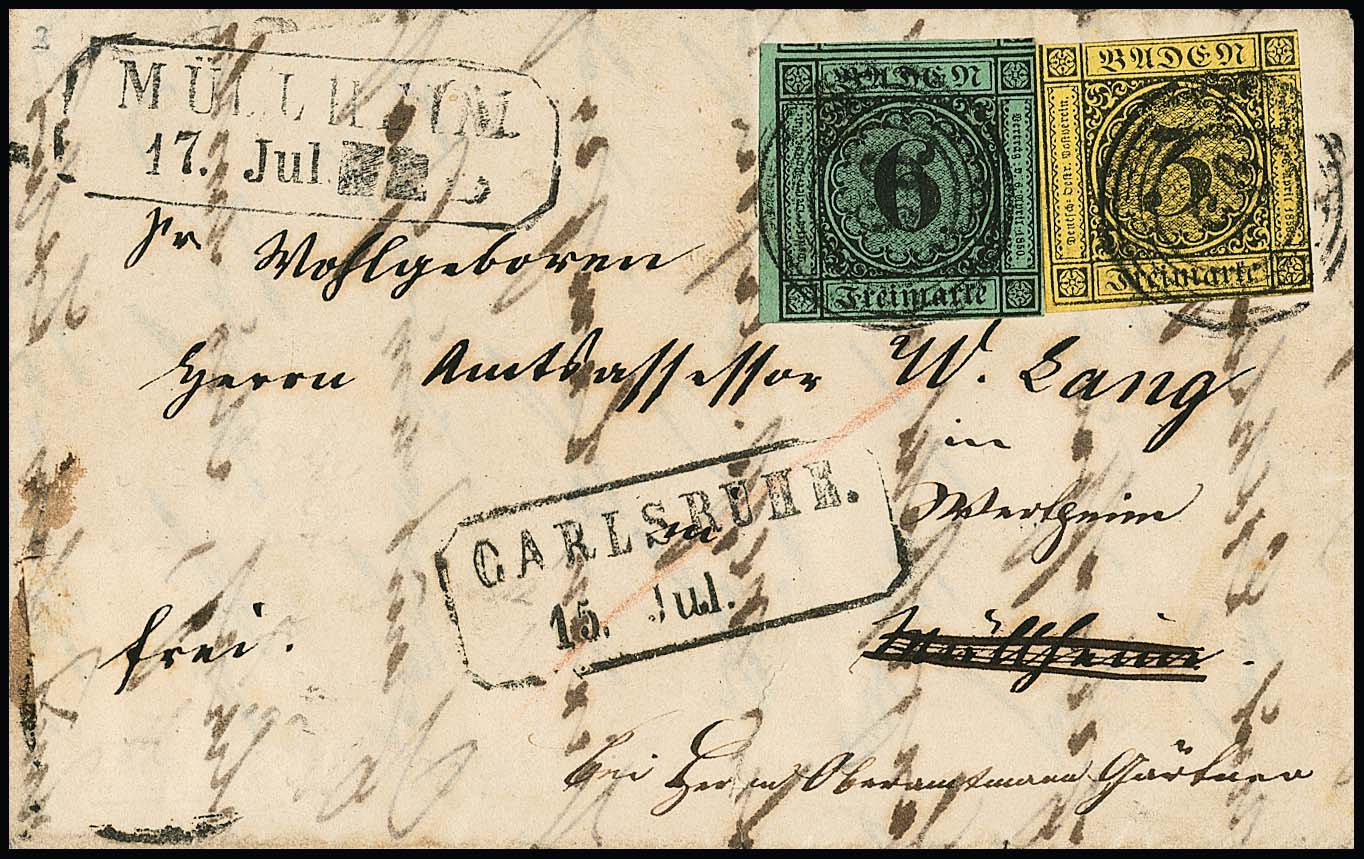 MÜLLHEIM
17. Jul
BADEN
6
Freimarke
BADEN
Deutsch-Oestr. Postverein.
3
Freimarke
Sr Wohlgeboren
Herrn Amtsassessor W. Lang
in
Wertheim
CARLSRUHE.
15. Jul.
frei.
Müllheim.
bei Herrn Oberamtmann Gärtner